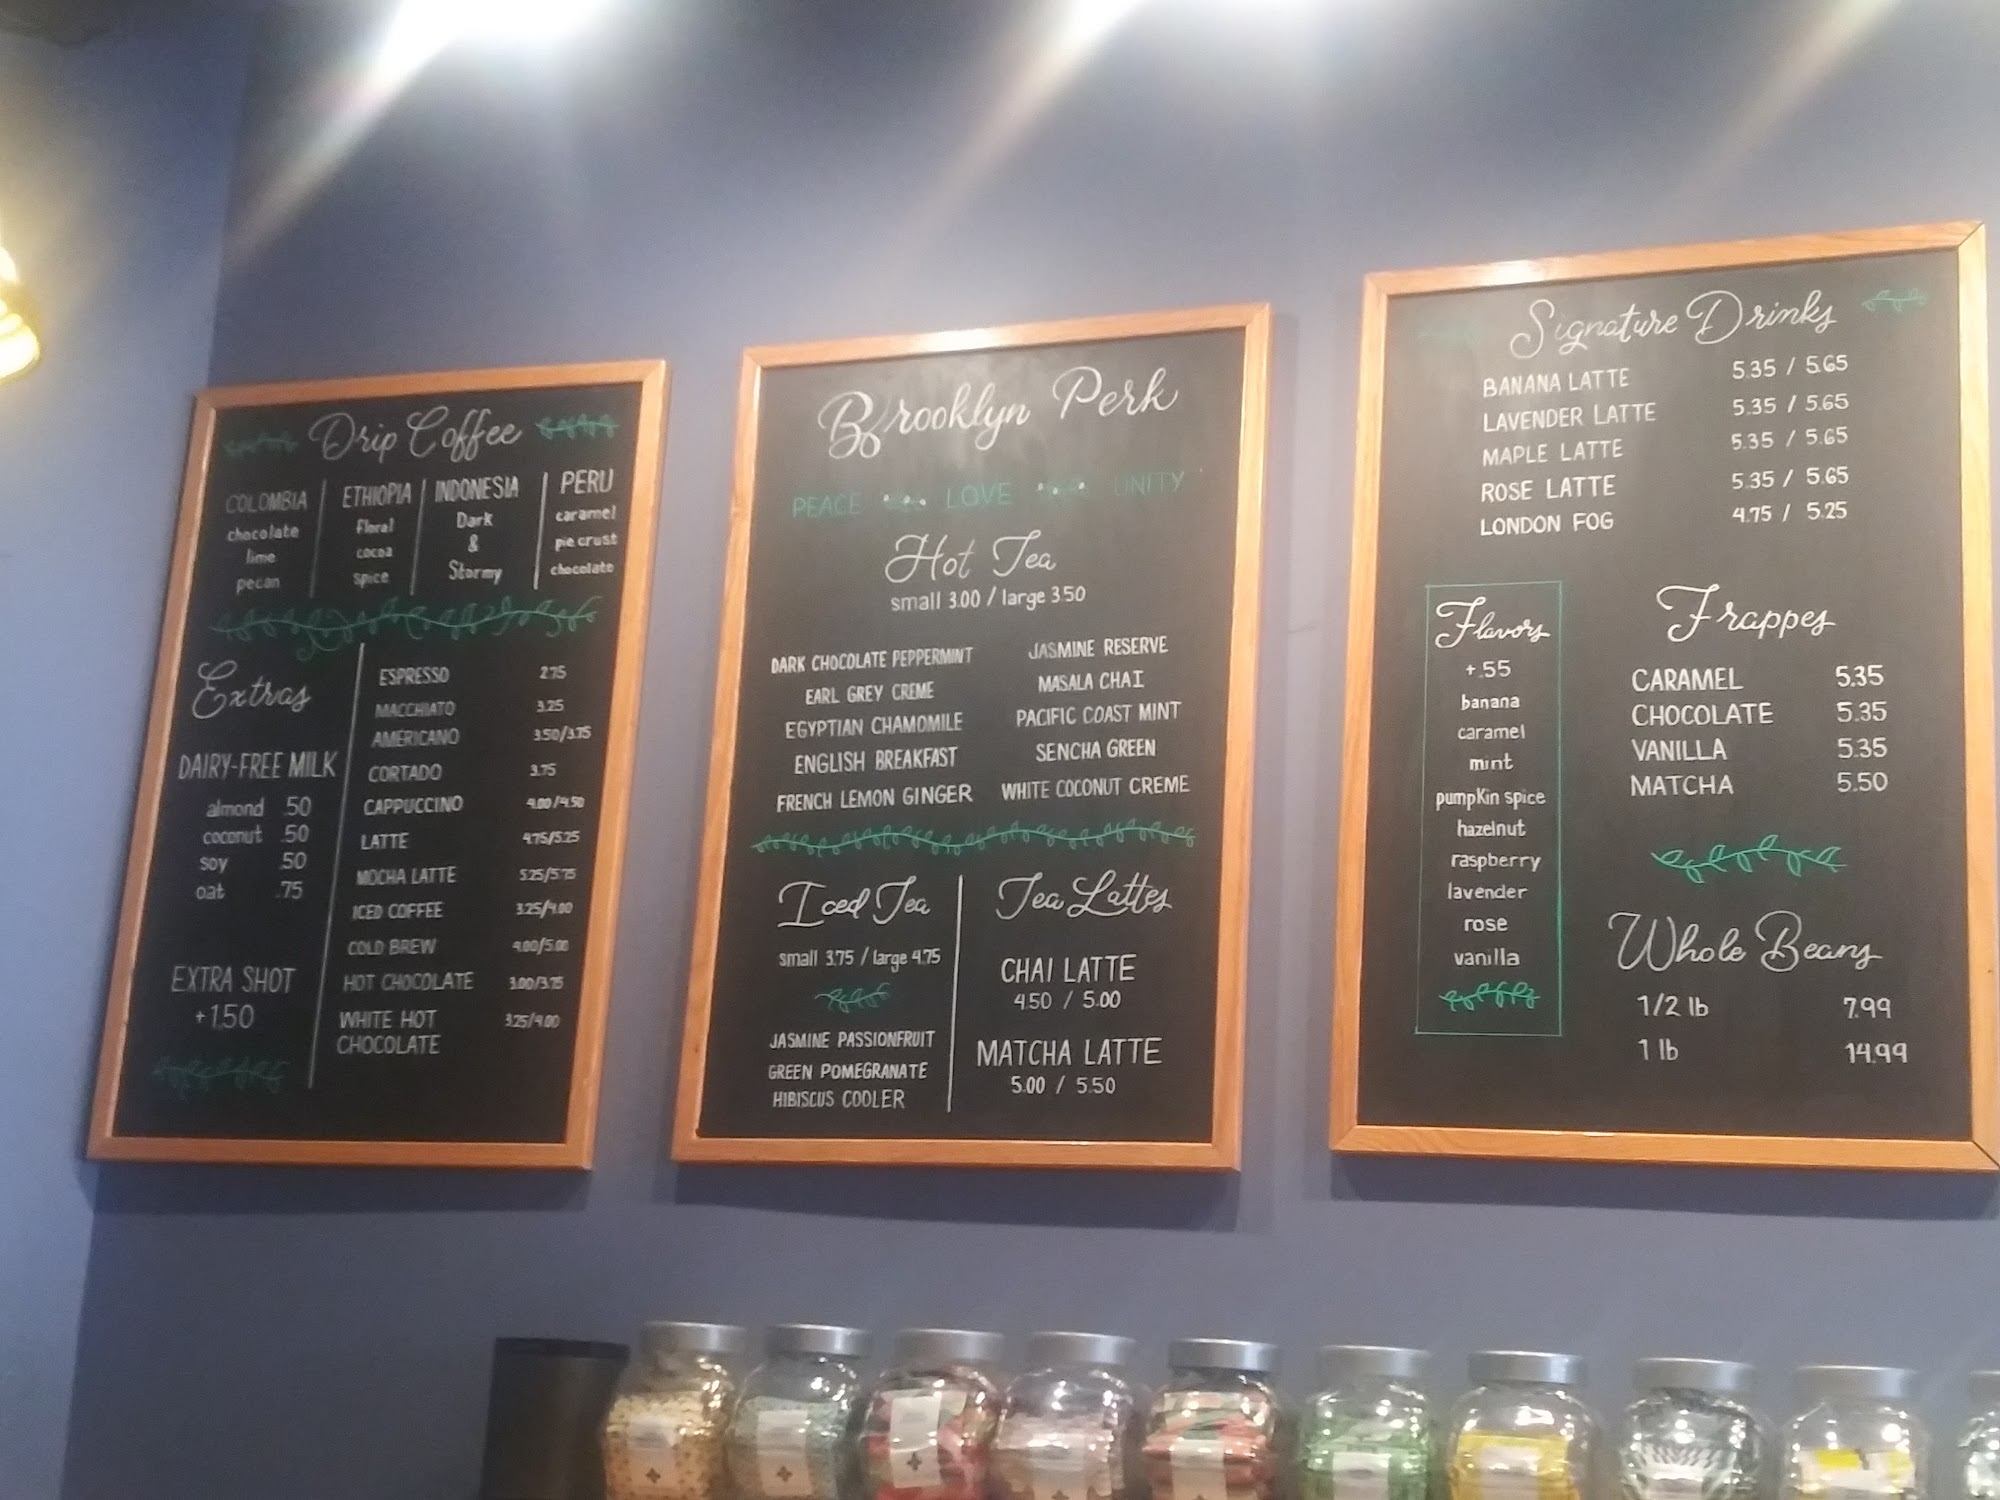 Drip Coffee
COLOMBIA
chocolate
lime
pecan
ETHIOPIA
Floral
cocoa
spice
INDONESIA
Dark
&
Stormy
PERU
caramel
pie crust
chocolate
Extras
DAIRY-FREE MILK
almond .50
coconut .50
soy .50
oat .75
EXTRA SHOT
+1.50
ESPRESSO 2.75
MACCHIATO 3.25
AMERICANO 3.50/3.75
CORTADO 3.75
CAPPUCCINO 4.00/4.50
LATTE 4.75/5.25
MOCHA LATTE 5.25/5.75
ICED COFFEE 3.25/4.00
COLD BREW 4.00/5.00
HOT CHOCOLATE 3.00/3.75
WHITE HOT 3.25/4.00
CHOCOLATE
Brooklyn Perk
PEACE LOVE UNITY
Hot Tea
small 3.00 / large 3.50
DARK CHOCOLATE PEPPERMINT
EARL GREY CREME
EGYPTIAN CHAMOMILE
ENGLISH BREAKFAST
FRENCH LEMON GINGER
JASMINE RESERVE
MASALA CHAI
PACIFIC COAST MINT
SENCHA GREEN
WHITE COCONUT CREME
Iced Tea
small 3.75 / large 4.75
JASMINE PASSIONFRUIT
GREEN POMEGRANATE
HIBISCUS COOLER
Tea Lattes
CHAI LATTE
4.50 / 5.00
MATCHA LATTE
5.00 / 5.50
Signature Drinks
BANANA LATTE 5.35 / 5.65
LAVENDER LATTE 5.35 / 5.65
MAPLE LATTE 5.35 / 5.65
ROSE LATTE 5.35 / 5.65
LONDON FOG 4.75 / 5.25
Flavors
+.55
banana
caramel
mint
pumpkin spice
hazelnut
raspberry
lavender
rose
vanilla
Frappes
CARAMEL 5.35
CHOCOLATE 5.35
VANILLA 5.35
MATCHA 5.50
Whole Beans
1/2 lb 7.99
1 lb 14.99